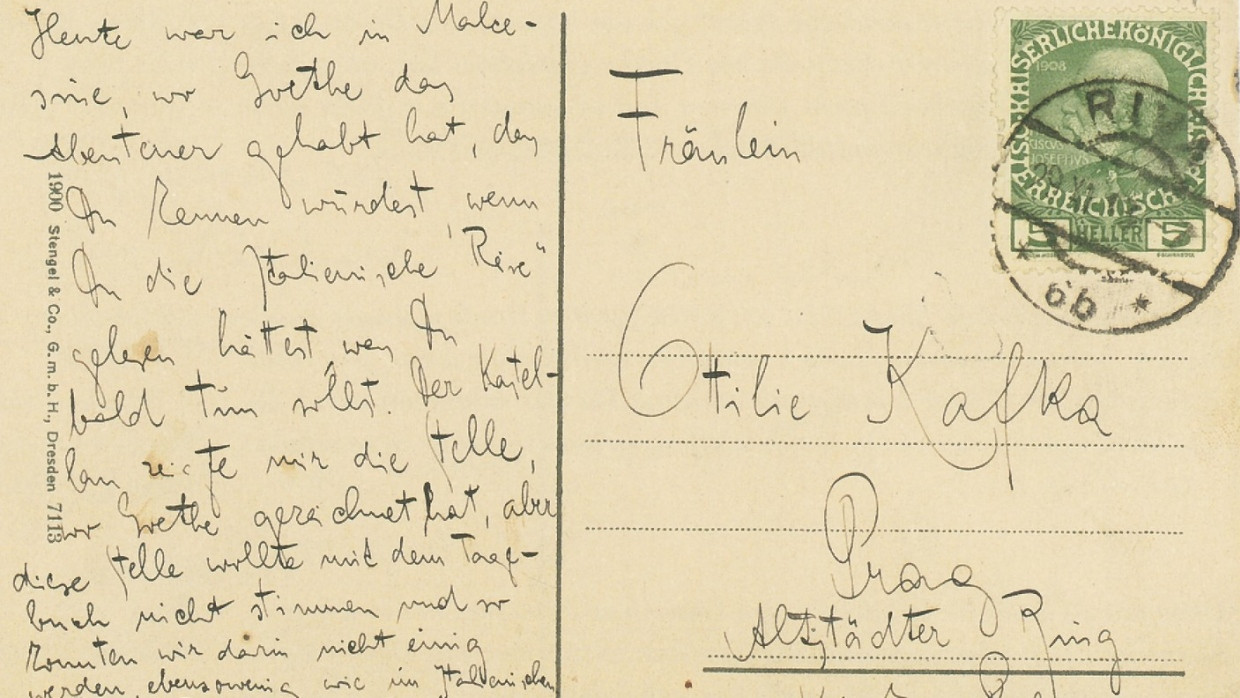 Heute war ich in Malce-
sine, wo Goethe das
Abenteuer gehabt hat, das
Du kennen würdest, wenn
Du die „Italienische Reise“
gelesen hättest, was Du
bald tun sollst. Der Kastel-
lan zeigte mir die Stelle,
wo Goethe gezeichnet hat, aber
diese Stelle wollte mit dem Tage-
buch nicht stimmen und so
konnten wir darin nicht einig
werden, ebensowenig wie im Italienischen
1900 Stengel & Co., G. m. b. H., Dresden 7113
Fräulein
Ottilie Kafka
Prag
Altstädter Ring
KAISERLICHE KÖNIGLICHE
ÖSTERREICHISCHE
1908
5 HELLER 5
RIVA
6b